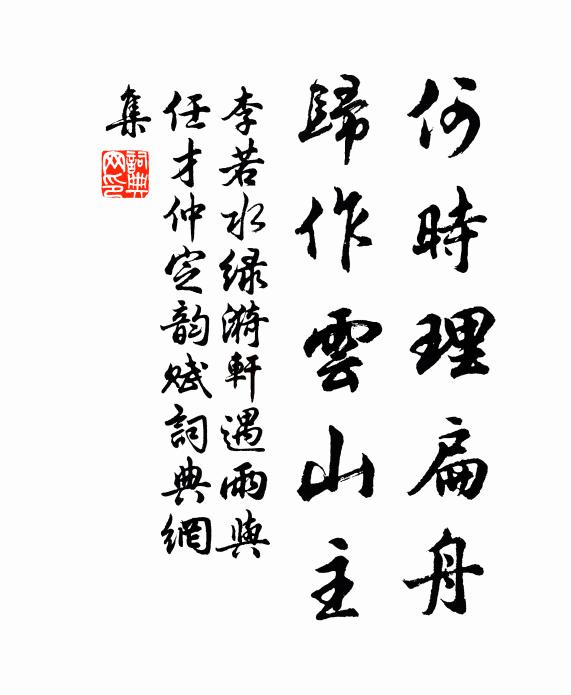 何時理扁舟
歸作雲山主
李若水绿漪軒遇雨與
任才仲定韵赋詞典網
集
詞典网印